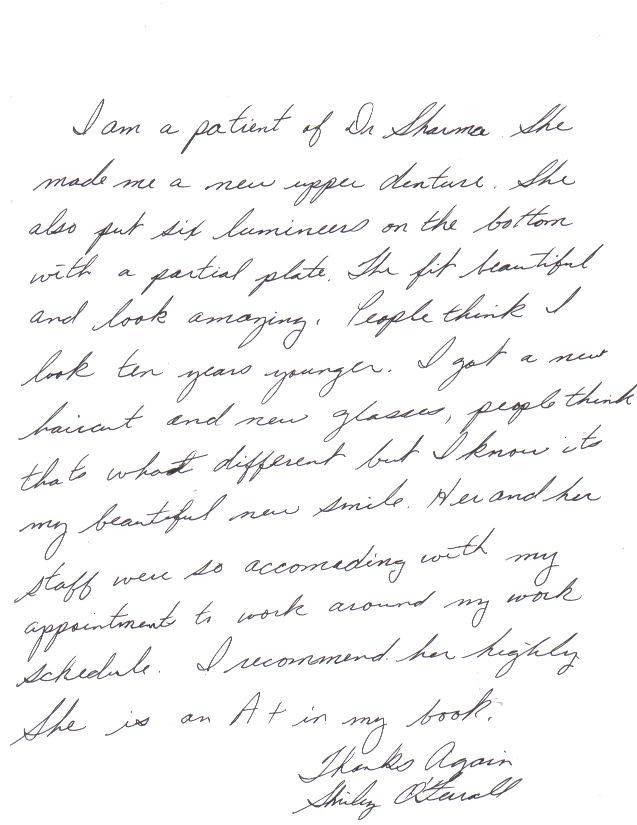 I am a patient of Dr Sharma. She
made me a new upper denture. She
also put six lumineers on the bottom
with a partial plate. The fit beautiful
and look amazing. People think I
look ten years younger. I got a new
haircut and new glasses, people think
thats what different but I know its
my beautiful new smile. Her and her
staff were so accomading with my
appointments to work around my work
schedule. I recommend her highly
She is an A+ in my book.
Thanks Again
Shirley O'Farrall